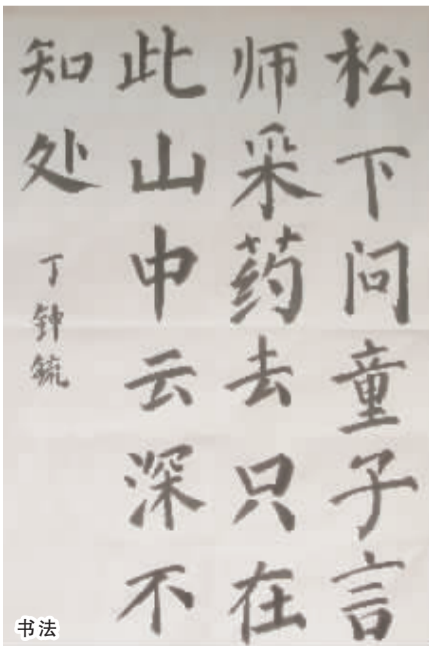 松下问童子言
师采药去只在
此山中云深不
知处
丁钟毓
书法